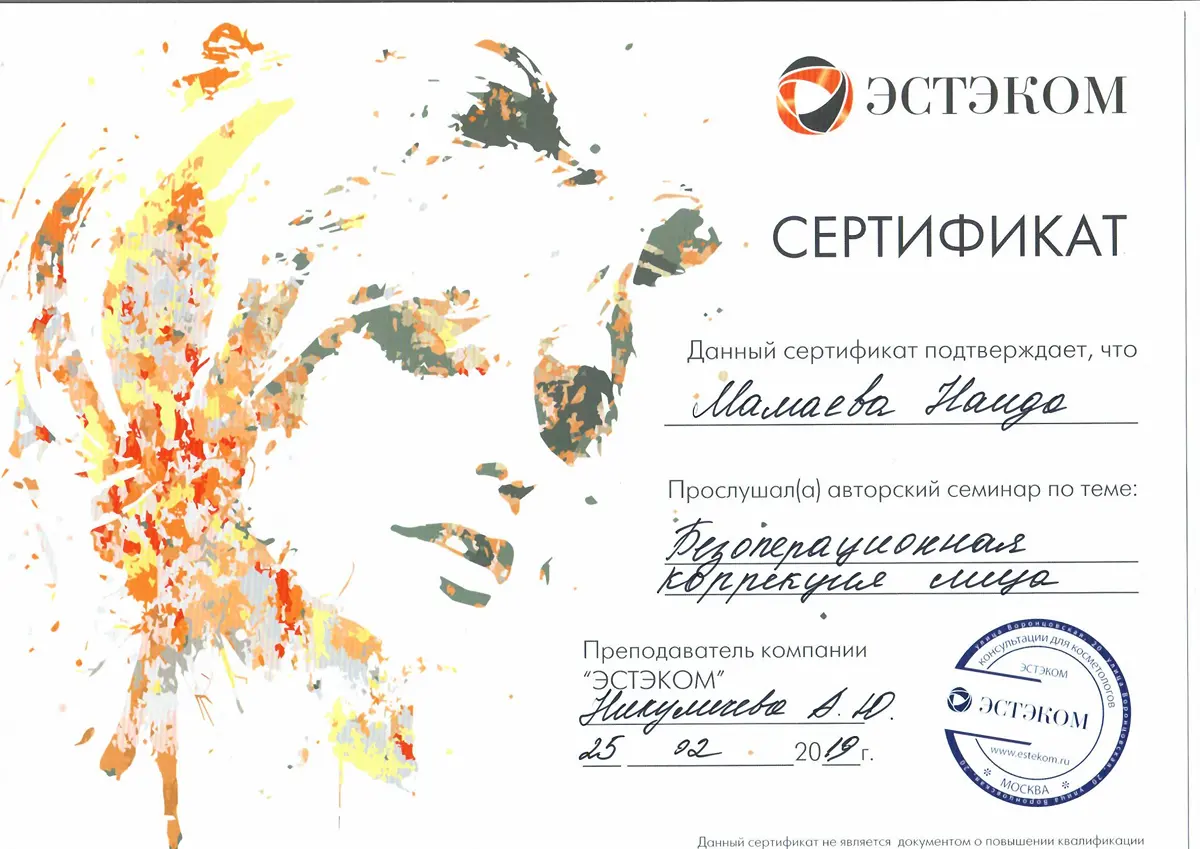 ЭСТЭКОМ
СЕРТИФИКАТ
Данный сертификат подтверждает, что
Мамаева Наида
Прослушал(а) авторский семинар по теме:
Безоперационная
коррекция лица
Преподаватель компании
“ЭСТЭКОМ”
Никуличева А. Ю.
25 02 2019г.
улица Воронцовская, 20 улица Воронцовская, 20 улица Воронцовская, 20,
консультации для косметологов
ЭСТЭКОМ
ЭСТЭКОМ
www.estekom.ru
* МОСКВА *
Данный сертификат не является документом о повышении квалификации